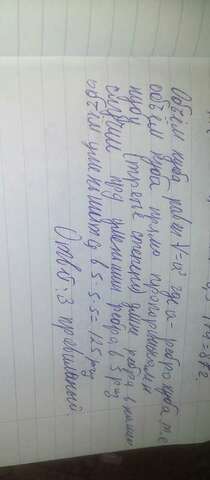 Объём куба равен V=a³ где a - ребро куба, т.е
объём куба прямо пропорционален
кубу (третьей степени) длины ребра, в нашем
случии при уменьшении ребра в 5 раз
объём уменьшится в 5·5·5=125 раз
Ответ: 3 правильный.